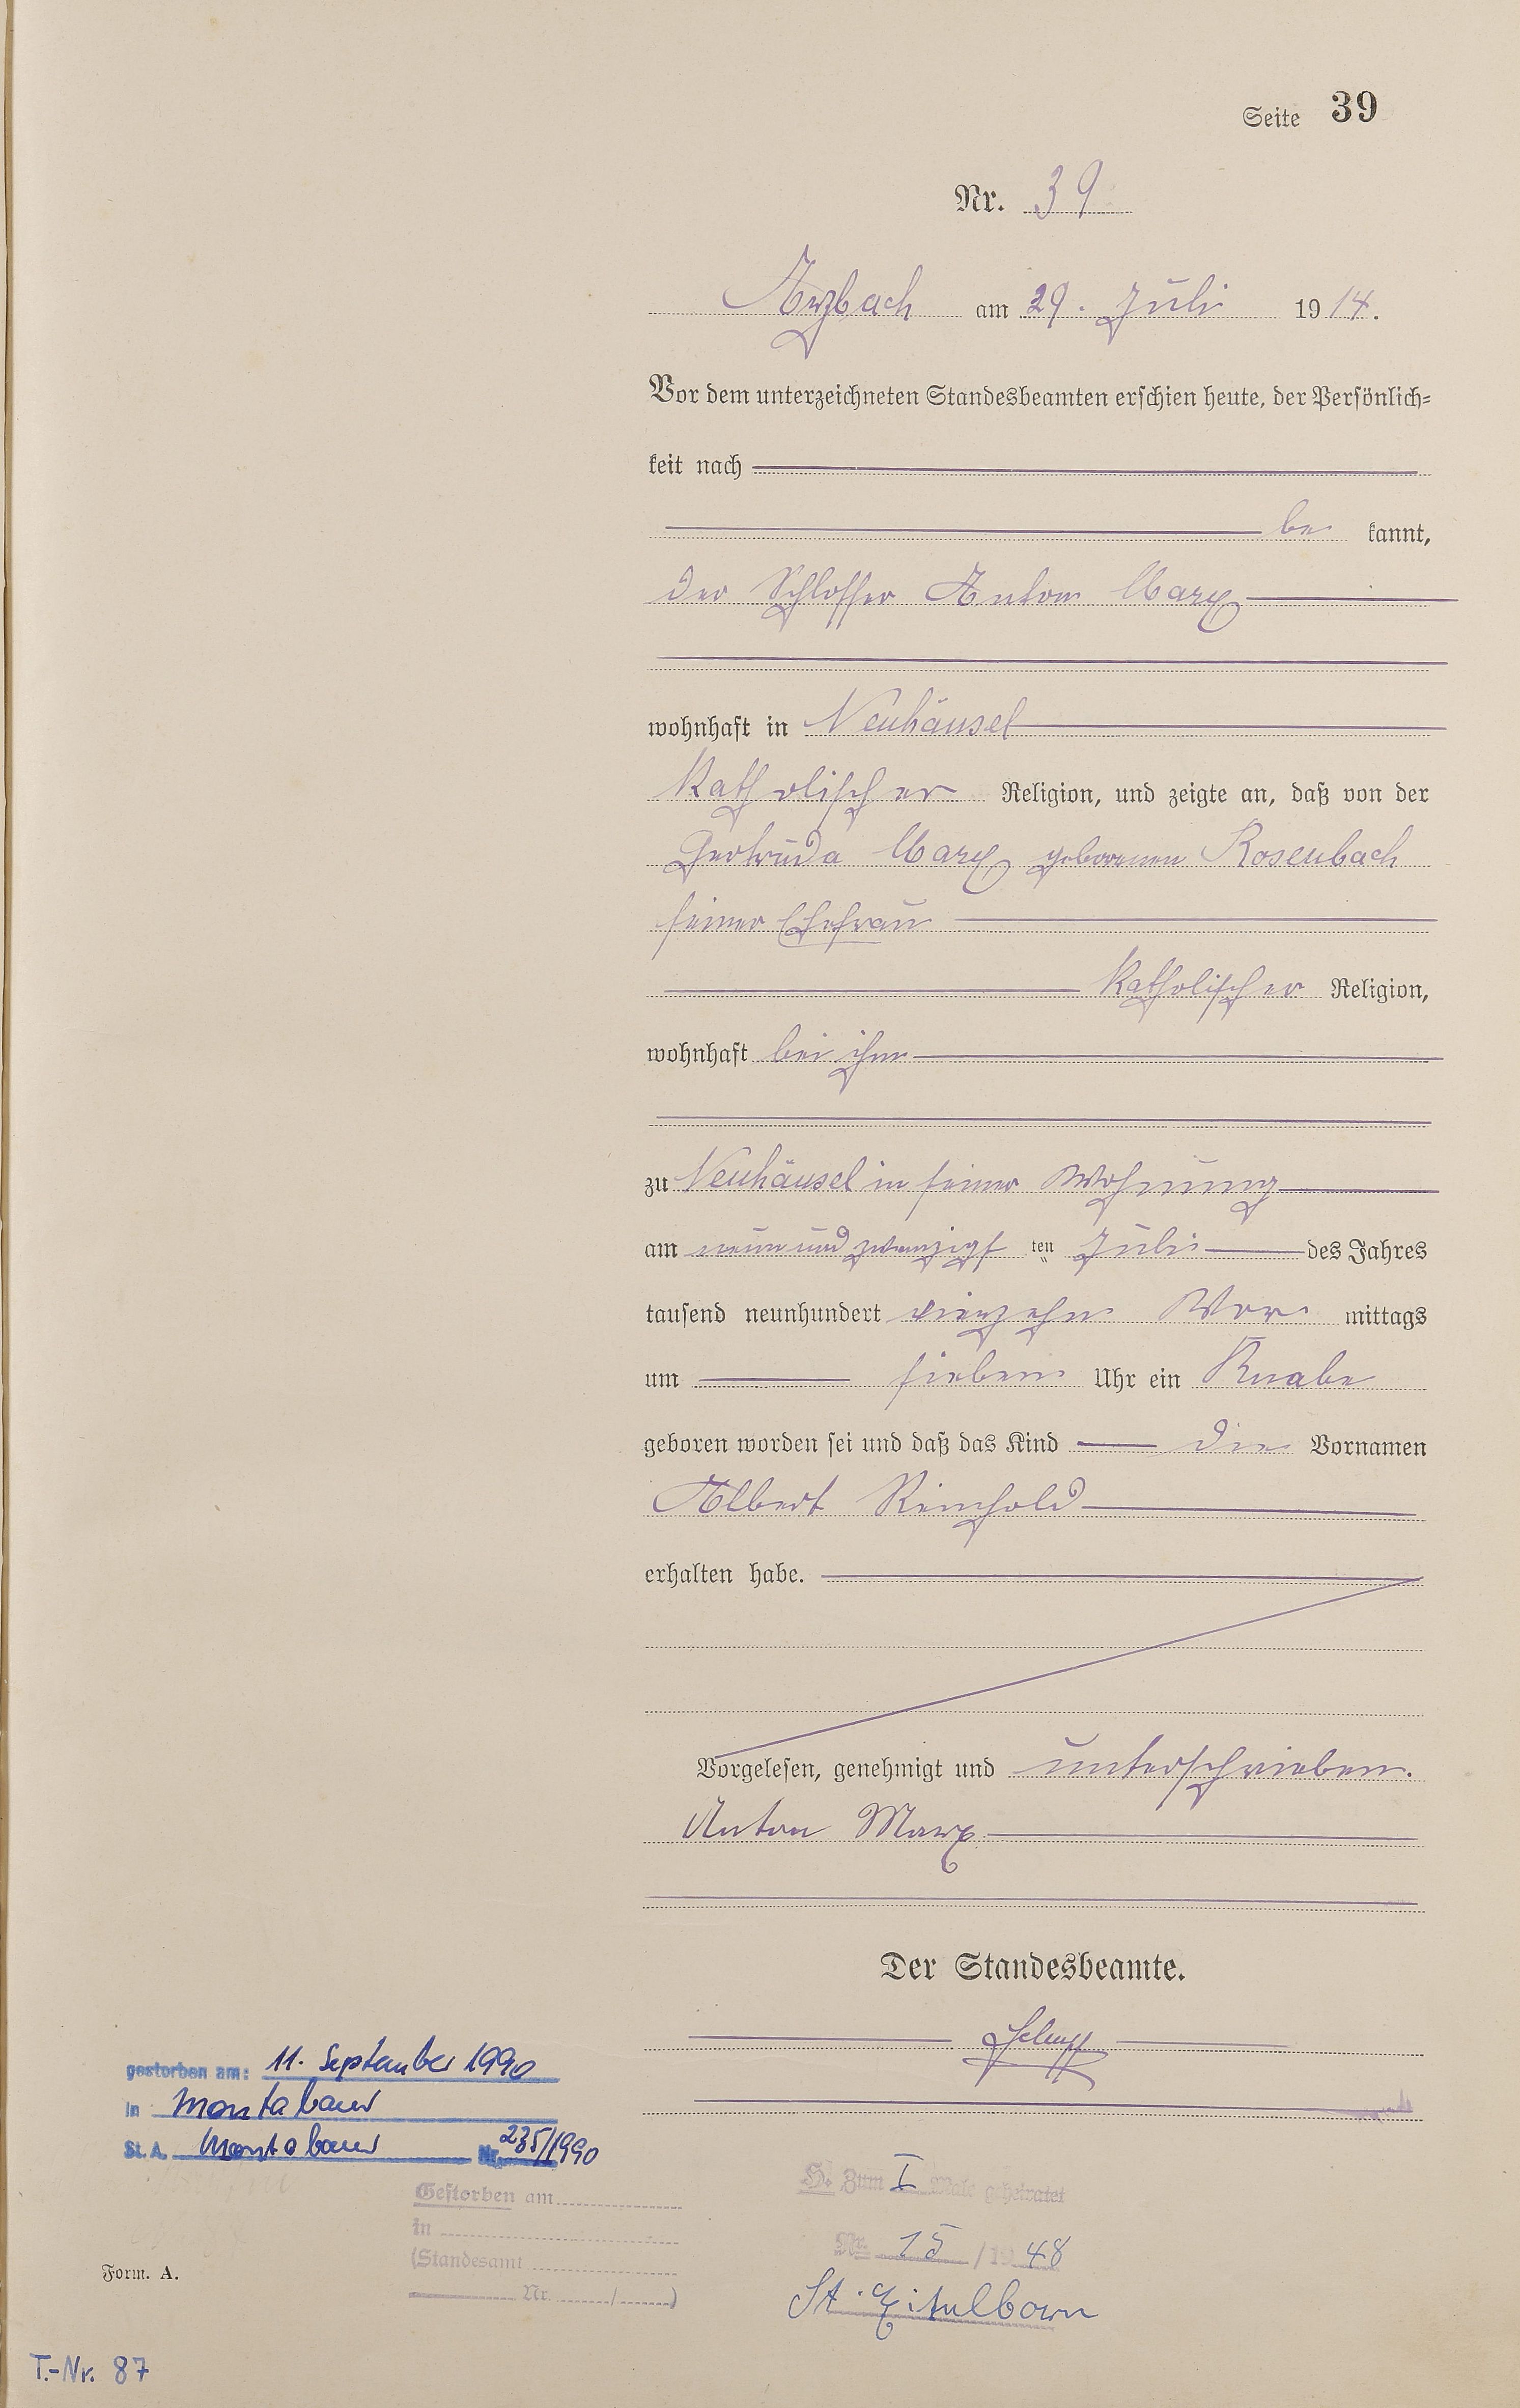 Seite 39
Nr. 39
Arzbach am 29. Juli 1914.
Vor dem unterzeichneten Standesbeamten erschien heute, der Persönlich-
keit nach
be kannt,
der Schlosser Anton Marx
wohnhaft in Neuhäusel
katholischer Religion, und zeigte an, daß von der
Gertruda Marx geborenen Rosenbach
seiner Ehefrau
katholischer Religion,
wohnhaft bei ihm
zu Neuhäusel in seiner Wohnung
am neun und zwanzigst ten Juli des Jahres
tausend neunhundert vierzehn Vor mittags
um sieben Uhr ein Knabe
geboren worden sei und daß das Kind die Vornamen
Albert Reinhold
erhalten habe.
Vorgelesen, genehmigt und unterschrieben.
Anton Marx
Der Standesbeamte.
gestorben am: 11. September 1990
in Montabaur
St. A. Montabaur Nr. 235/1990
Gestorben am
in
(Standesamt
Nr. / )
H. Zum I Male geheiratet
Nr. 15 / 19 48
St. A. Eitelborn
Form. A.
T.-Nr. 87